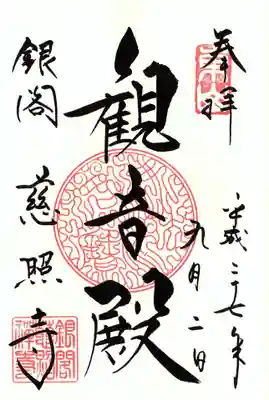 奉拝
平成二七年
九月二日
観音殿
銀閣 慈照寺